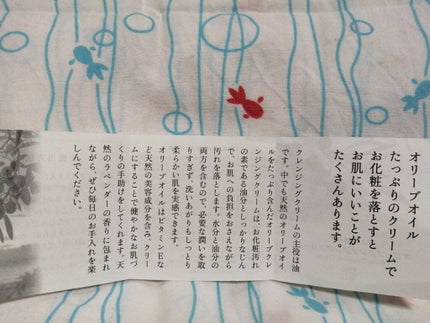 オリーブオイル
たっぷりのクリームで
お化粧を落とすと
お肌にいいことが
たくさんあります。
クレンジングクリームの主役は油
です。中でも天然のオリーブオイ
ルをたっぷり含んだオリーブクレ
ンジングクリームは、お化粧汚れ
の素である油分としっかりなじん
で、お肌への負担をおさえながら
汚れを落とします。水分と油分の
両方を含むので、必要な潤いを取
りすぎず、洗いあがりもしっとり
柔らかい肌を実感できます。
オリーブオイルはビタミンEな
ど天然の美容成分を含み、クリー
ムにすることで健やかなお肌づ
くりの手助けをしてくれます。天
然のラベンダーの香りに包まれ
ながら、ぜひ毎日のお手入れを楽
しんでください。